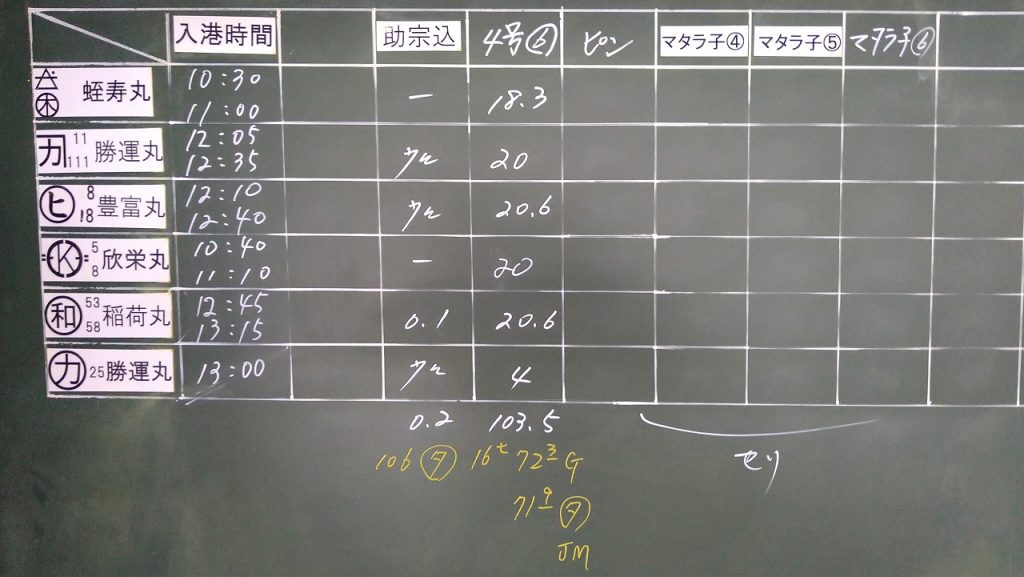 入港時間 助宗込 4号⑥ ピン マタラ子④ マタラ子⑤ マタラ子⑥
木 蛭寿丸 10:30 11:00 ー 18.3
カ 11 111 勝運丸 12:05 12:35 ウロ 20
ヒ 8 18 豊富丸 12:10 12:40 ウロ 20.6
K 5 8 欣栄丸 10:40 11:10 ー 20
和 53 58 稲荷丸 12:45 13:15 0.1 20.6
カ 25 勝運丸 13:00 ウロ 4
0.2 103.5
106 タ 16 七 72 三 G セリ
71 9 タ
JM